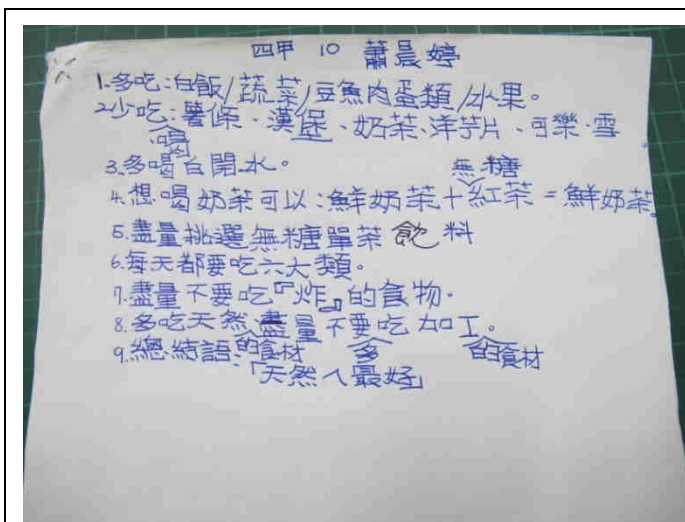 四甲 10 蕭晨婷
1.多吃:白飯/蔬菜/豆魚肉蛋類/水果。
2.少吃:薯條、漢堡、奶茶、洋芋片、可樂、雪
、喝
3.多喝白開水。
無糖
4.想喝奶茶可以:鮮奶茶+紅茶=鮮奶茶。
5.盡量挑選無糖單茶飲料
6.每天都要吃六大類。
7.盡量不要吃『炸』的食物。
8.多吃天然、盡量不要吃加工。
的食材 多 的食材
9.總結語:
「天然ㄟ最好」